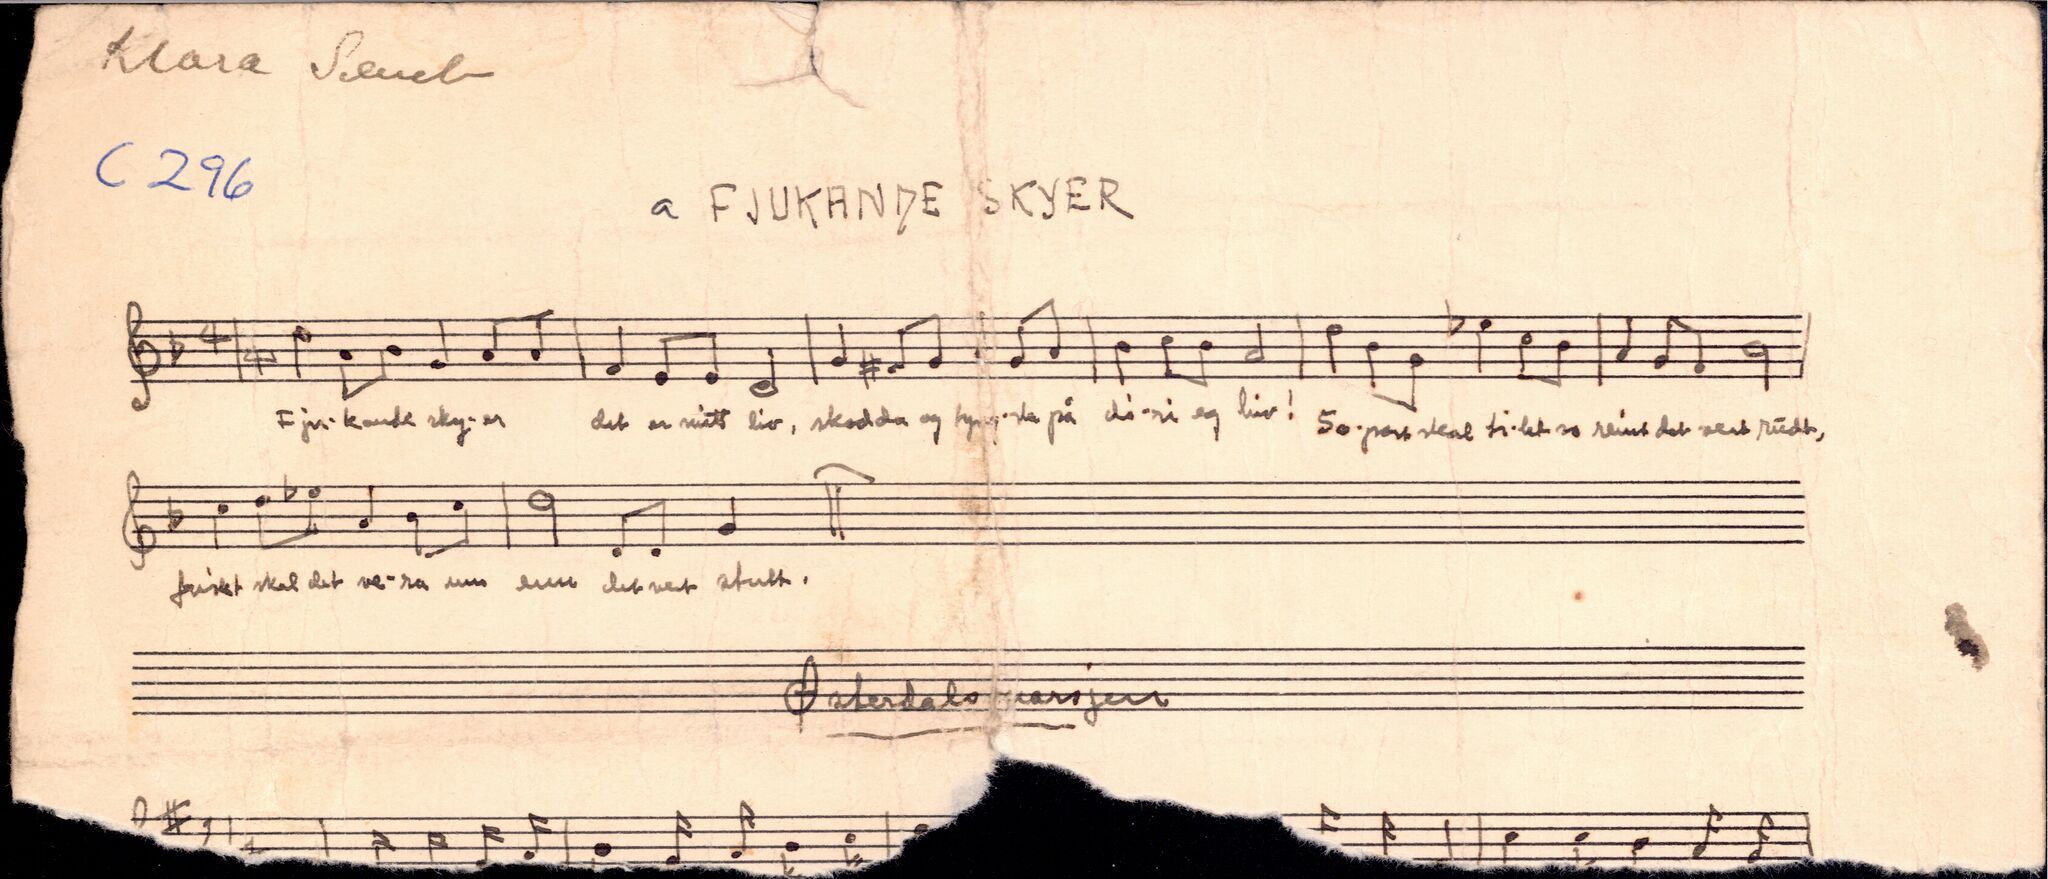 Klara Semb
C 296
a FJUKANDE SKYER
4
4
Fju-kande sky-er det er mitt liv, skodda og tyng-sla på dri-vi eg bliv!
So-park skal ti-let so reint det vert rudt,
friskt skal det ve-ra um enn det vert stutt.
Østerdalsmarsjen